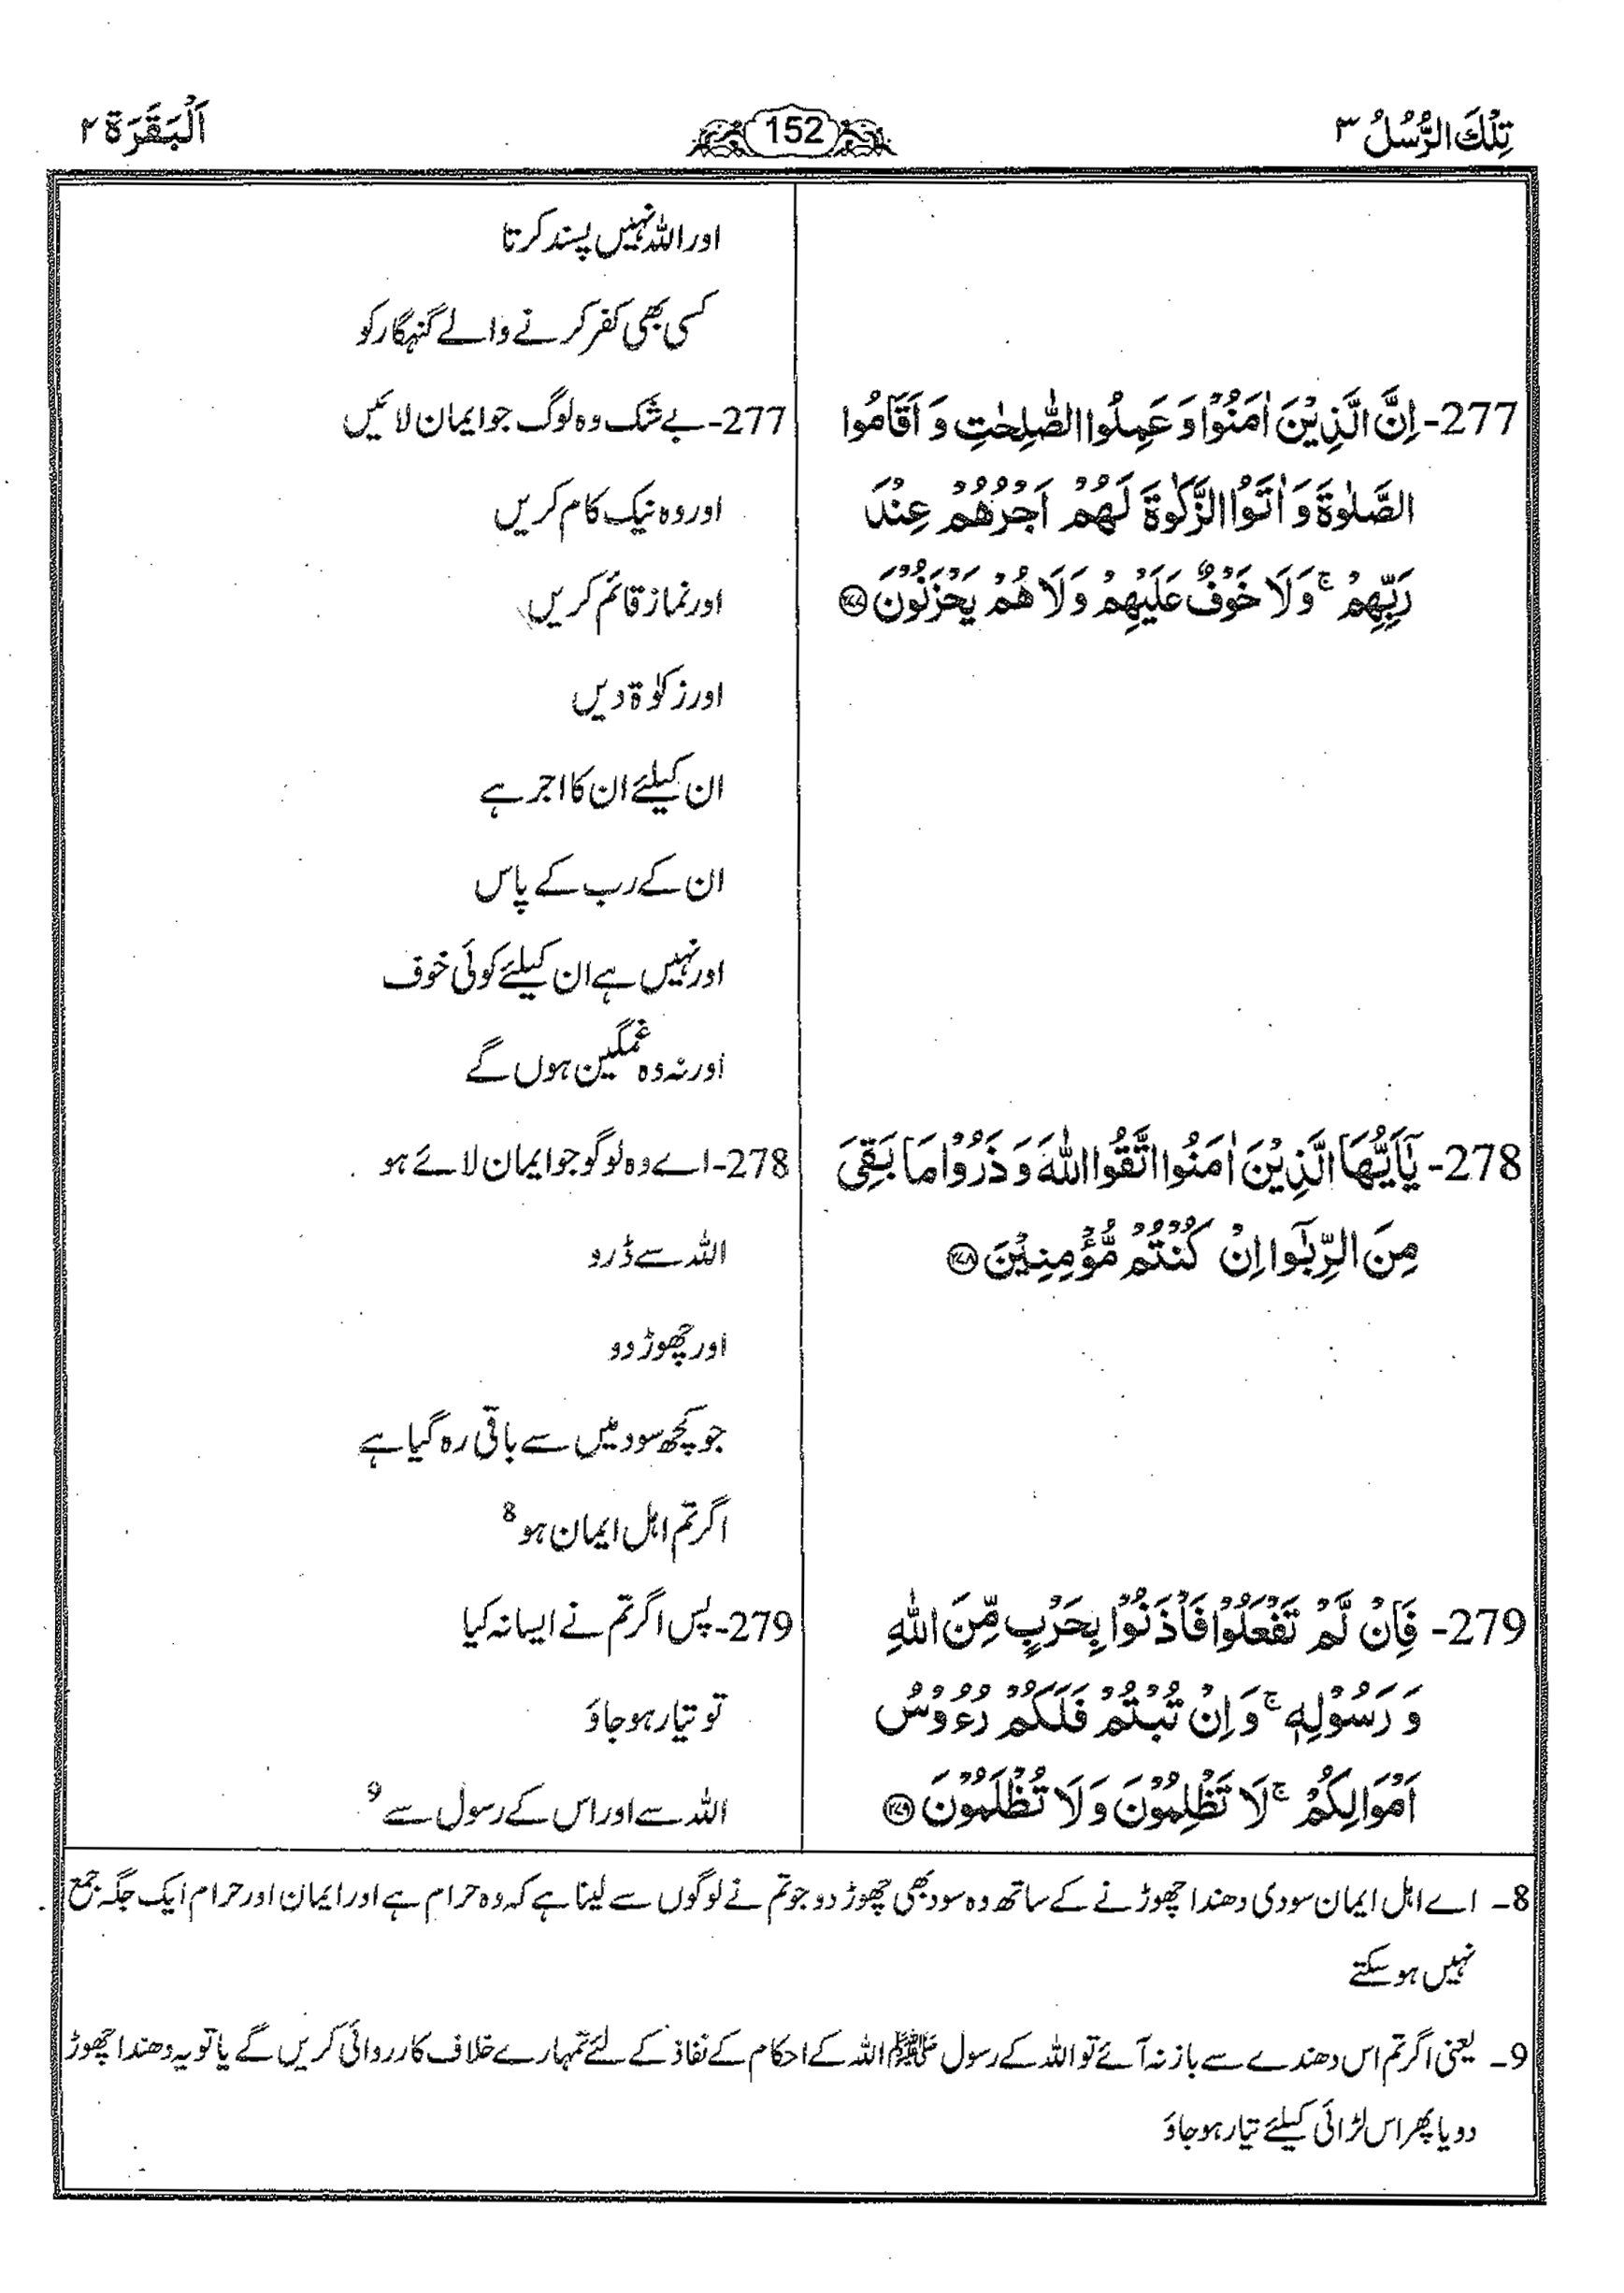 تِلْكَ الرُّسُلُ ۳
152
اَلْبَقَرَة ۲
277- اِنَّ الَّذِيْنَ اٰمَنُوْا وَ عَمِلُوا الصّٰلِحٰتِ وَ اَقَامُوا
الصَّلٰوةَ وَ اٰتَوُا الزَّكٰوةَ لَهُمْ اَجْرُهُمْ عِنْدَ
رَبِّهِمْ ۚ وَلَا خَوْفٌ عَلَيْهِمْ وَلَا هُمْ يَحْزَنُوْنَ ﴿۲۷۷﴾
278- يٰۤاَيُّهَا الَّذِيْنَ اٰمَنُوا اتَّقُوا اللّٰهَ وَ ذَرُوْا مَا بَقِىَ
مِنَ الرِّبٰۤوا اِنْ كُنْتُمْ مُّؤْمِنِيْنَ ﴿۲۷۸﴾
279- فَاِنْ لَّمْ تَفْعَلُوْا فَاْذَنُوْا بِحَرْبٍ مِّنَ اللّٰهِ
وَ رَسُوْلِهٖ ۚ وَ اِنْ تُبْتُمْ فَلَكُمْ رُءُوْسُ
اَمْوَالِكُمْ ۚ لَا تَظْلِمُوْنَ وَ لَا تُظْلَمُوْنَ ﴿۲۷۹﴾
اور اللہ نہیں پسند کرتا
کسی بھی کفر کرنے والے گنہگار کو
277- بے شک وہ لوگ جو ایمان لائیں
اور وہ نیک کام کریں
اور نماز قائم کریں
اور زکوٰۃ دیں
ان کیلئے ان کا اجر ہے
ان کے رب کے پاس
اور نہیں ہے ان کیلئے کوئی خوف
اور نہ وہ غمگین ہوں گے
278- اے وہ لوگو جو ایمان لائے ہو
اللہ سے ڈرو
اور چھوڑ دو
جو کچھ سود میں سے باقی رہ گیا ہے
اگر تم اہل ایمان ہو 8
279- پس اگر تم نے ایسا نہ کیا
تو تیار ہو جاؤ
اللہ سے اور اس کے رسول سے 9
8- اے اہل ایمان سودی دھندا چھوڑنے کے ساتھ وہ سود بھی چھوڑ دو جو تم نے لوگوں سے لینا ہے کہ وہ حرام ہے اور ایمان اور حرام ایک جگہ جمع
نہیں ہو سکتے
9- یعنی اگر تم اس دھندے سے باز نہ آئے تو اللہ کے رسول ﷺ اللہ کے احکام کے نفاذ کے لئے تمہارے خلاف کارروائی کریں گے یا تو یہ دھندا چھوڑ
دو یا پھر اس لڑائی کیلئے تیار ہو جاؤ